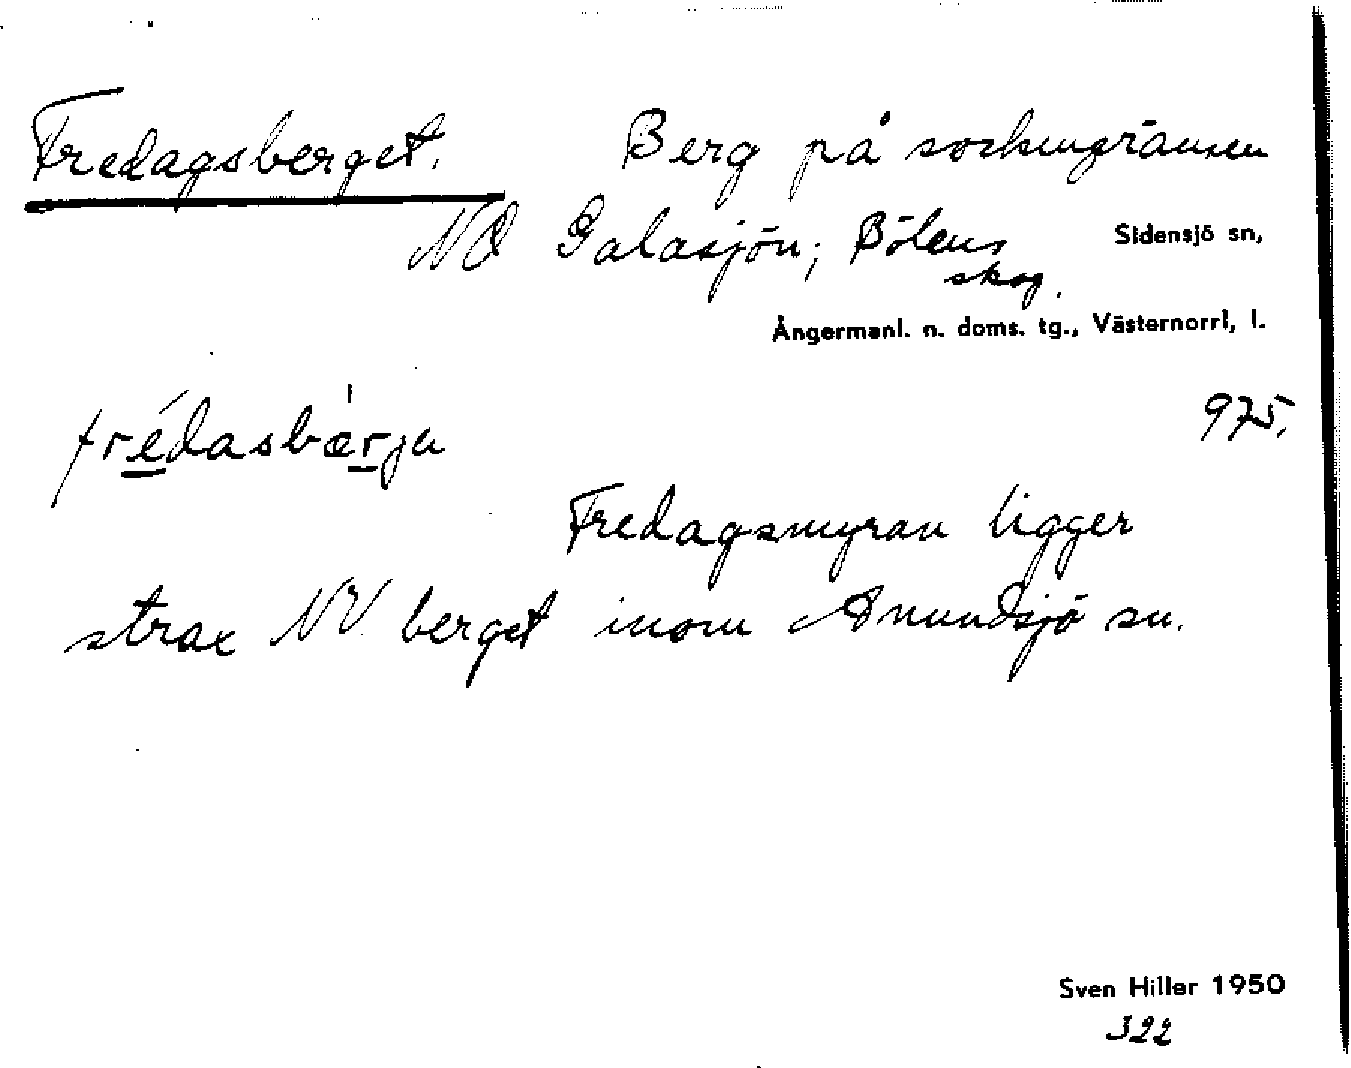 Fredagsberget. Berg på sockengränsen
NO Galasjön; Bölens
skog.
Sidensjö sn,
Ångermanl. n. doms. tg., Västernorrl, l.
975.
frédasbærja
Fredagsmyran ligger
strax NV berget inom Anundsjö sn.
Sven Hiller 1950
322